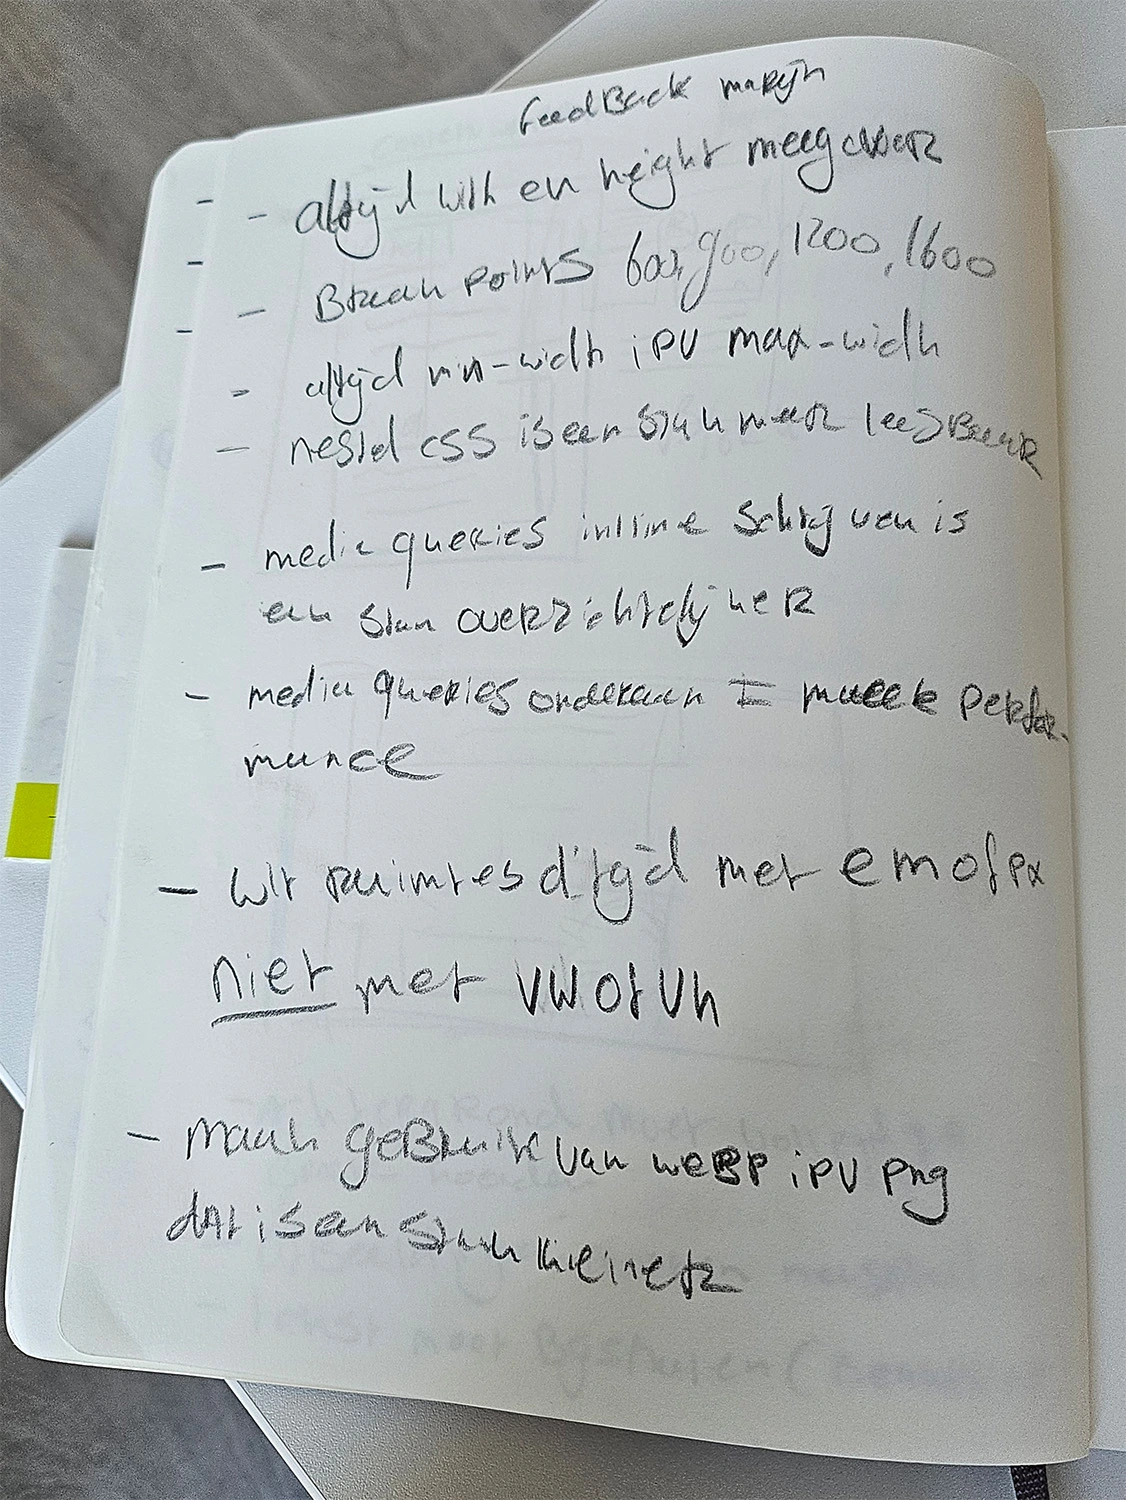 feedBack marijn
- altijd with en height meegeven
- Breakpoints 600, 900, 1200, 1600
- altijd min-width ipv max-width
- nested css is een stuk meer leesBaar
- media queries inline schrijven is
een stuk overzichtelijker
- media queries onderaan = meer perfor-
mance
- wit ruimtes altijd met em of px
niet met vw of vh
- maak geBruik van weBp ipv png
dat is een stuk kleiner